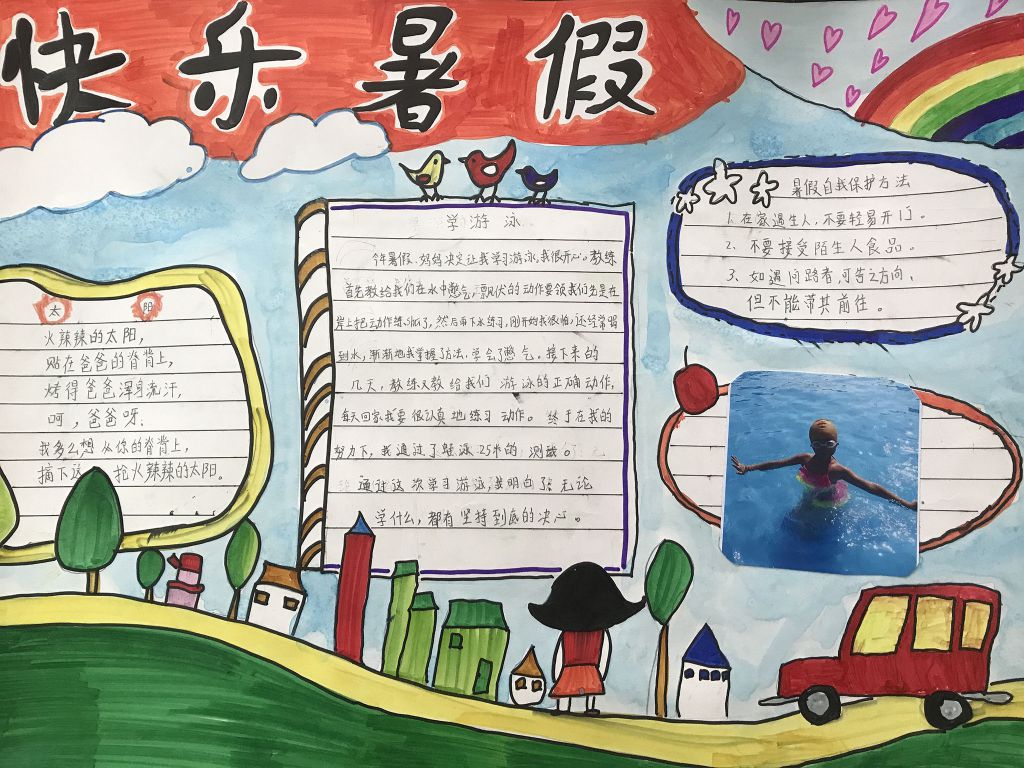 快乐暑假
太阳
火辣辣的太阳,
贴在爸爸的脊背上,
烤得爸爸浑身流汗,
呵,爸爸呀,
我多么想从你的脊背上,
摘下这 抢火辣辣的太阳。
学游泳
今年暑假,妈妈决定让我学习游泳,我很开心。教练
首先教给我们在水中憋气,飘伏的动作要领我们先是在
岸上把动作练习了,然后再下水练习,刚开始我很怕,还经常喝
到水,渐渐地我掌握了方法,学会了憋气。接下来的
几天,教练又教给我们游泳的正确动作,
每天回家我要很认真地练习动作。终于在我的
努力下,我通过了蛙泳25米的,测试。
通过这次学习游泳,我明白了 无论
学什么,都有坚持到底的决心。
暑假自我保护方法
1.在家遇生人,不要轻易开门。
2.不要接受陌生人食品。
3.如遇问路者,可告之方向,
但不能带其前往。